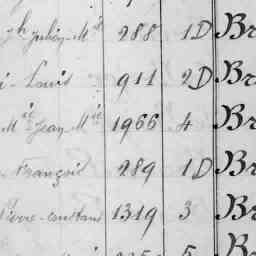 gh Julien-Mie 288 1D Br
i- Louis 911 2D Br
Mie Jean-Mie 1966 4 Br
François 289 1D Br
Pierre-constant 1319 3 Br
5 Br